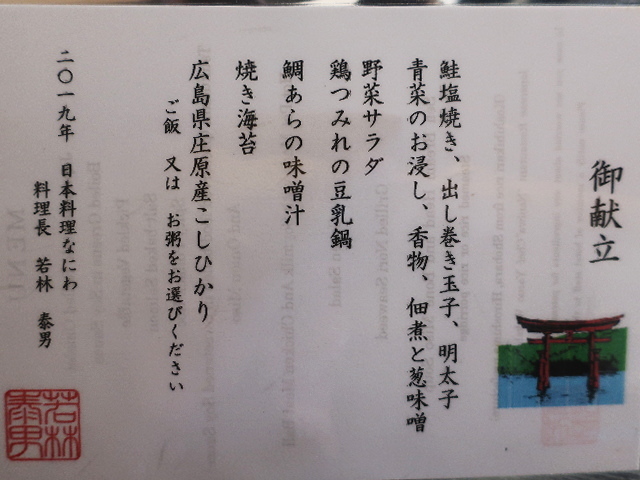 御献立
鮭塩焼き、出し巻き玉子、明太子
青菜のお浸し、香物、佃煮と葱味噌
野菜サラダ
鶏つみれの豆乳鍋
鯛あらの味噌汁
焼き海苔
広島県庄原産こしひかり
ご飯 又は お粥をお選びください
二〇一九年 日本料理なにわ
料理長 若林 泰男
若林
泰男